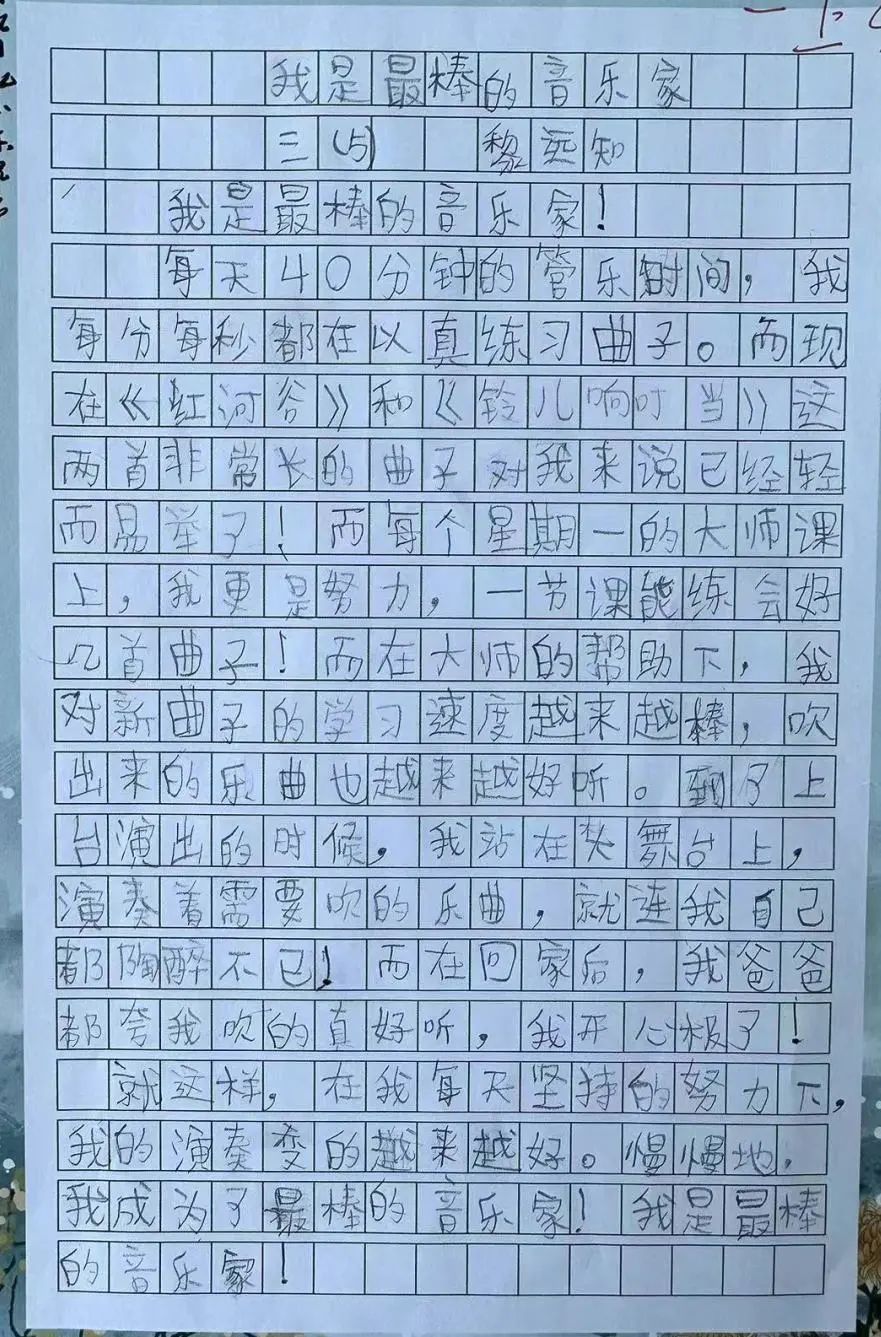 我是最棒的音乐家
三(5) 黎远知
我是最棒的音乐家！
每天40分钟的管乐时间，我
每分每秒都在以真练习曲子。而现
在《红河谷》和《铃儿响叮当》这
两首非常长的曲子对我来说已经轻
而易举了！而每个星期一的大师课
上，我更是努力，一节课能练会好
几首曲子！而在大师的帮助下，我
对新曲子的学习速度越来越棒，吹
出来的乐曲也越来越好听。到了上
台演出的时候，我站在舞台上，
演奏着需要吹的乐曲，就连我自己
都陶醉不已！而在回家后，我爸爸
都夸我吹的真好听，我开心极了！
就这样，在我每天坚持的努力下，
我的演奏变的越来越好。慢慢地，
我成为了最棒的音乐家！我是最棒
的音乐家！